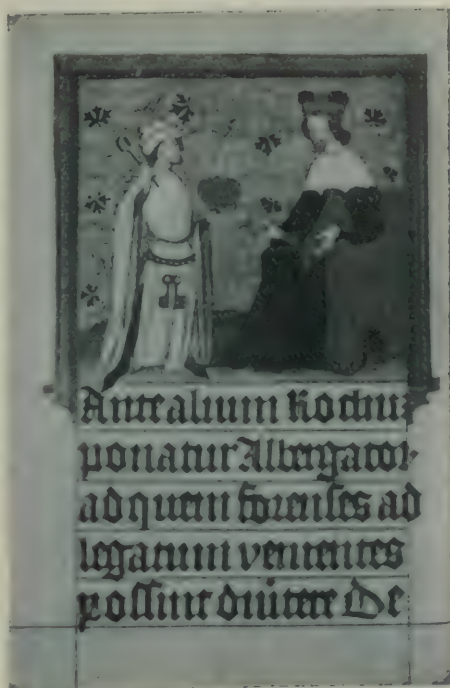 Ante alium Rochuz
ponatur Albergator
ad quem forenses ad
legatum venientes
possint De